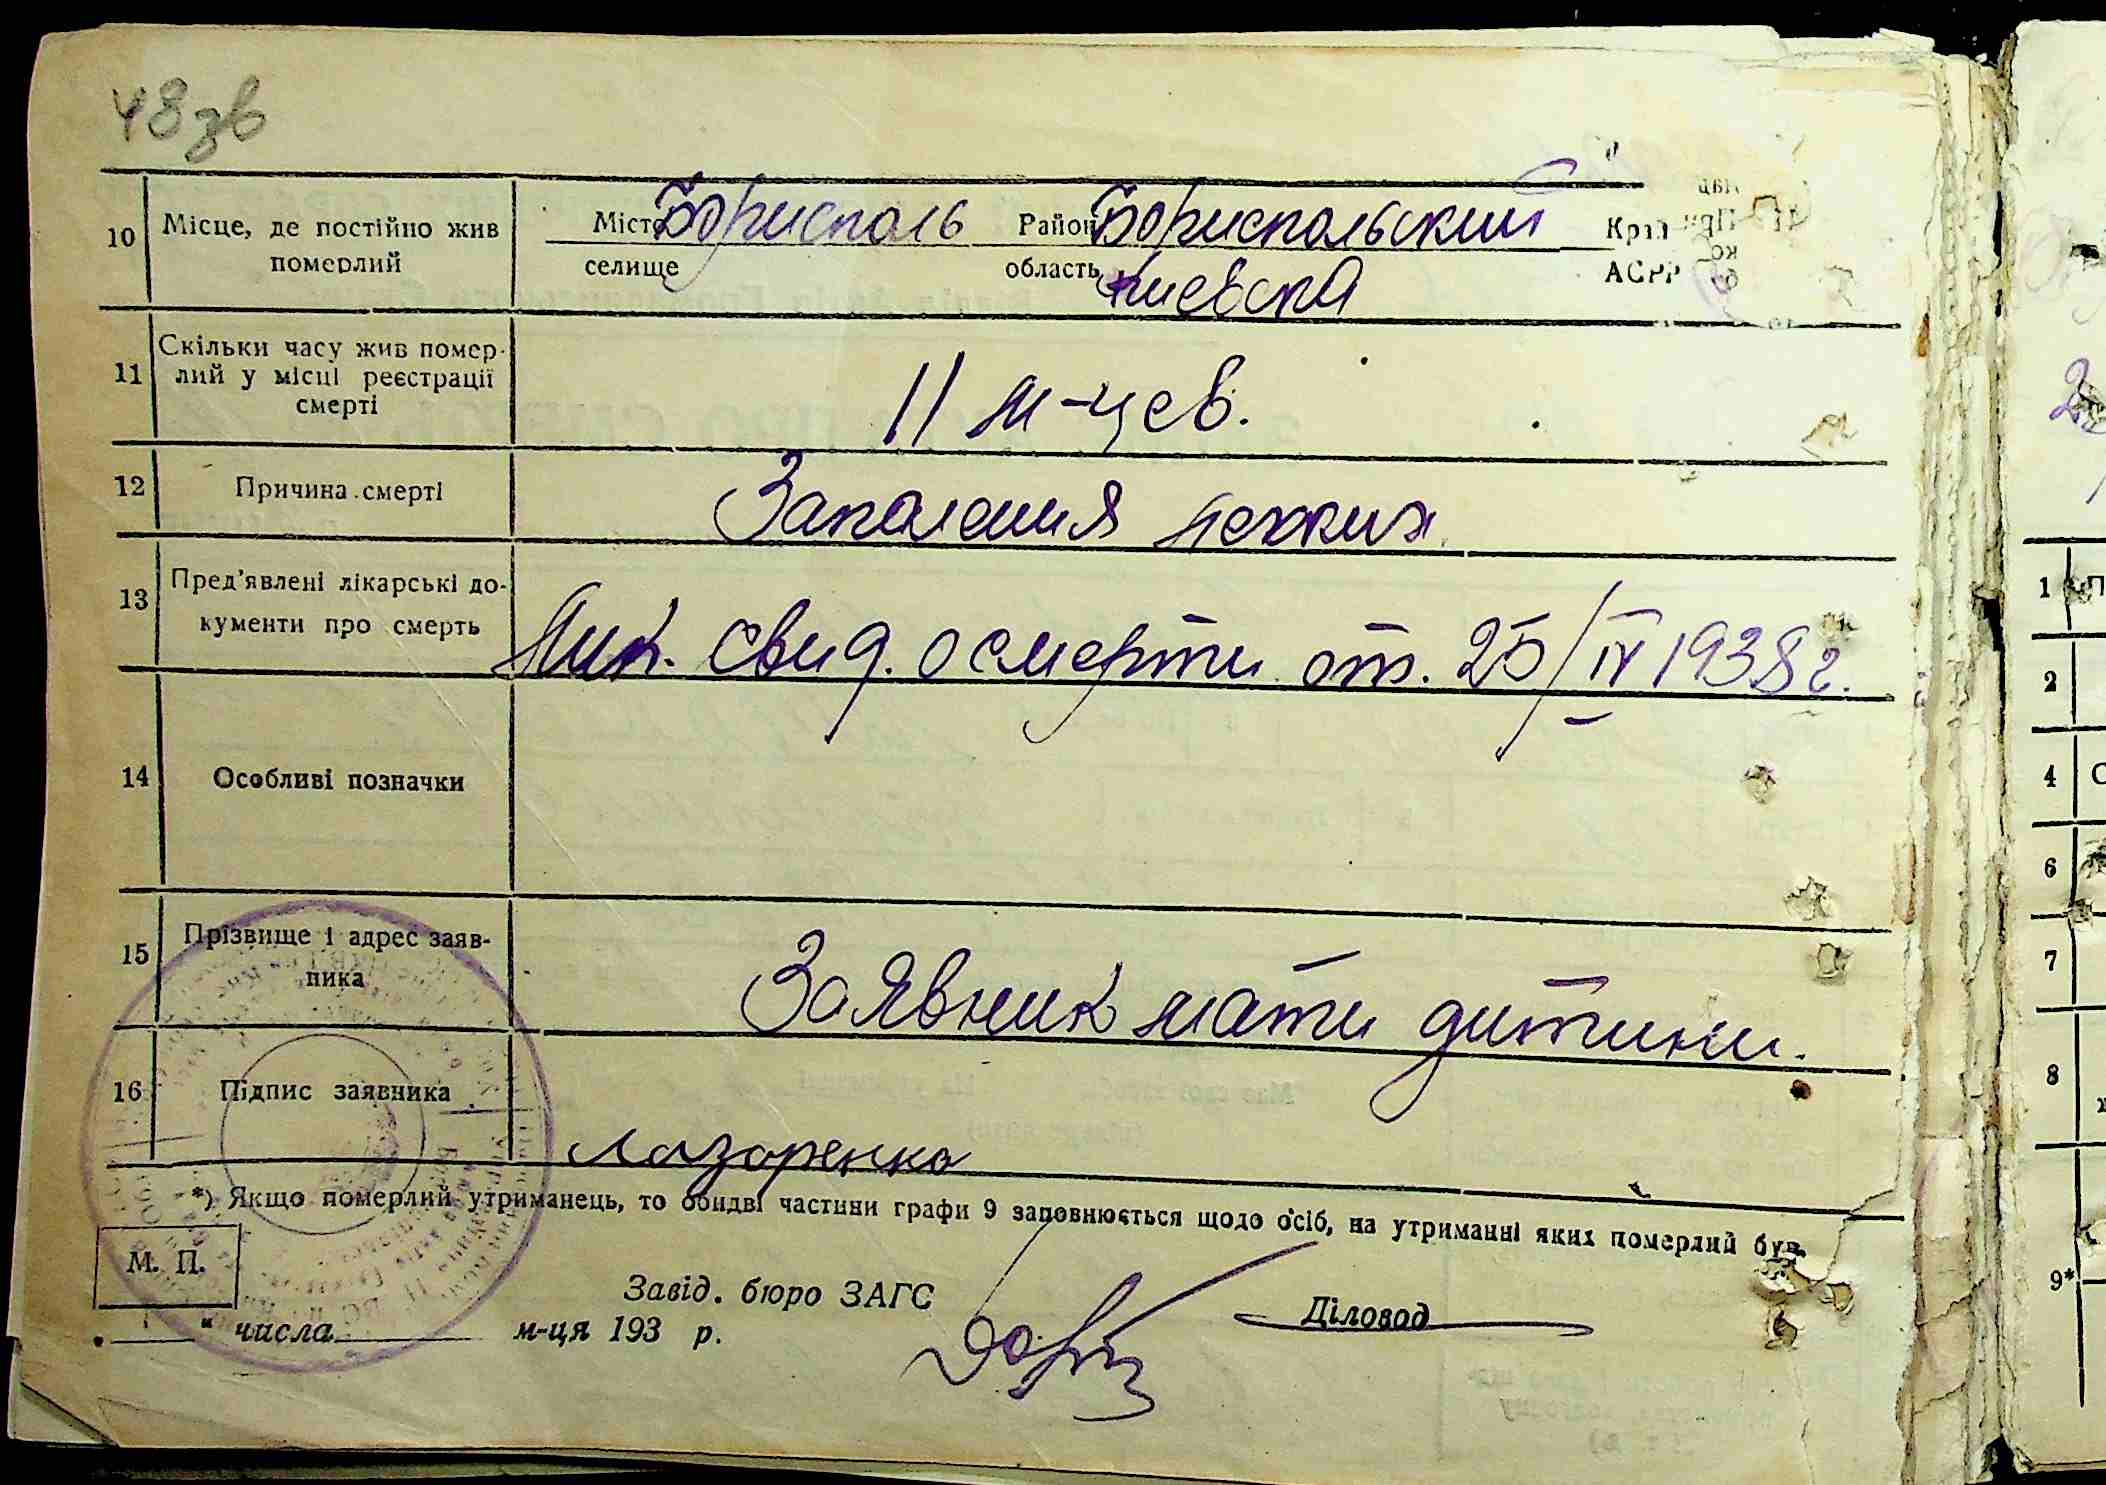 48зв
10 Місце, де постійно жив Місто Борисполь Район Бориспольский Край
померлий селище область Киевска АСРР
Скільки часу жив помер-
11 лий у місці реєстрації 11 м-цев.
смерті
12 Причина смерті Запаления легких
Пред'явлені лікарські до-
13 кументи про смерть Лик. свид. о смерти от. 25/IV 1938 г.
14 Особливі позначки
15 Прізвище і адрес заяв-
ника Заявник мати дитини.
16 Підпис заявника
Лазаренко
*) Якщо померлий утриманець, то обидві частини графи 9 заповнюється щодо осіб, на утриманні яких померлий був.
М. П.
Завід. бюро ЗАГС Діловод
" числа м-ця 193 р.
1 П
2
4 С
6
7
8
9*